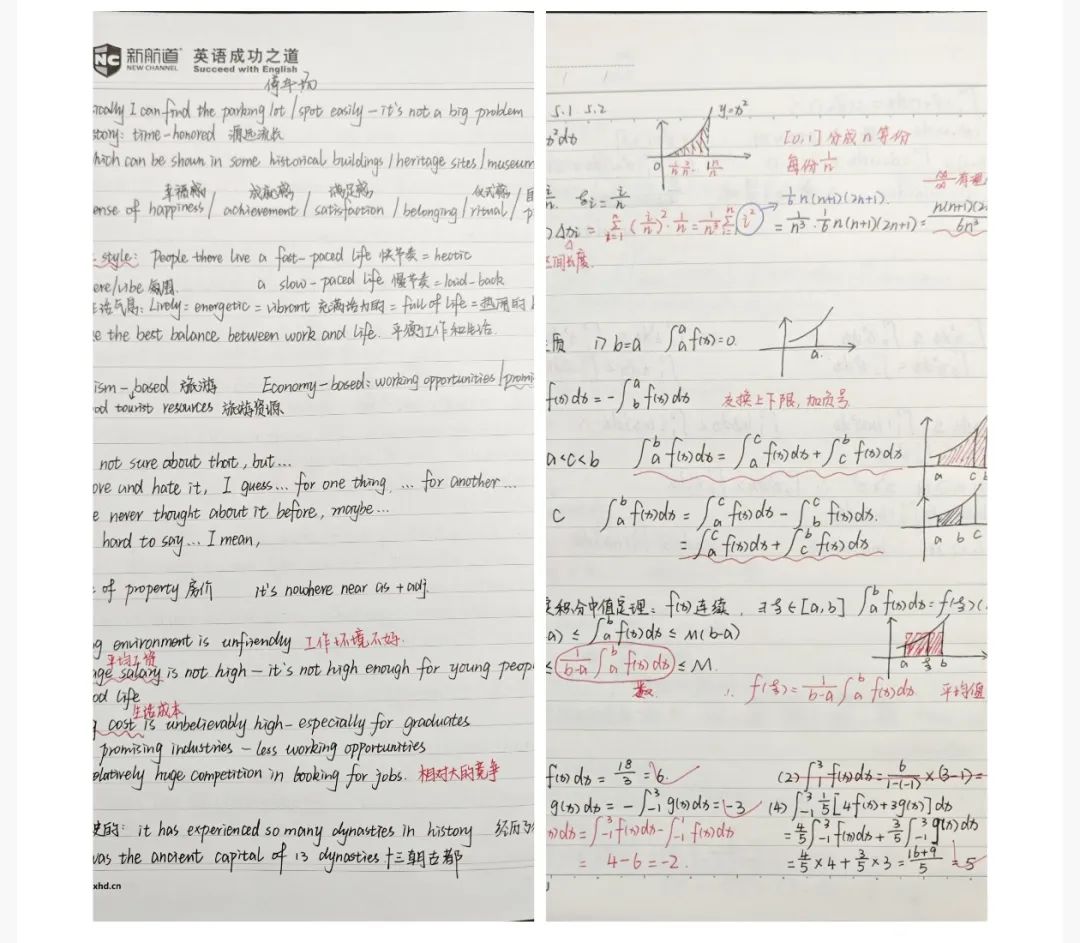 NC 新航道 英语成功之道
NEW CHANNEL Succeed with English
停车场
ically I can find the parking lot / spot easily – it's not a big problem
story: time-honored 源远流长
which can be shown in some historical buildings / heritage sites / museum
幸福感 成就感 满足感 仪式感
ense of happiness / achievement / satisfaction / belonging / ritual /
style: People there live a fast-paced life 快节奏 = hectic
ere/vibe 氛围 a slow-paced life 慢节奏 = laid-back
生活气息: Lively = energetic = vibrant 充满活力的 = full of life = 热闹的
e the best balance between work and life. 平衡工作和生活
ism-based 旅游 Economy-based: working opportunities / promi
od tourist resources 旅游资源
not sure about that, but...
ove and hate it, I guess... for one thing, ... for another...
e never thought about it before, maybe...
hard to say... I mean,
of property 房价 it's nowhere near as + adj.
g environment is unfriendly 工作环境不好.
平均工资
age salary is not high – it's not high enough for young peop
od life
生活成本
g cost is unbelievably high – especially for graduates
promising industries – less working opportunities
elatively huge competition in booking for jobs. 相对大的竞争
史的: it has experienced so many dynasties in history 经历了
was the ancient capital of 13 dynasties 十三朝古都
xhd.cn
5.1 5.2
x²dx
y=x²
0 1/n 2/n n/n
[0,1] 分成 n 等份
每份 1/n
ξi = i/n
1/6 n(n+1)(2n+1).
) Δxi = Σ(i=1→n) (i/n)² · 1/n = 1/n³ Σ(i=1→n) i² = 1/n³ · 1/6 n(n+1)(2n+1) = n(n+1)(2n / 6n³
区间长度.
质 1) b=a ∫ₐᵃ f(x)=0.
a.
f(x)dx = -∫_b^a f(x)dx 交换上下限, 加负号
a<c<b ∫_a^b f(x)dx = ∫_a^c f(x)dx + ∫_c^b f(x)dx
a c b
c ∫_a^b f(x)dx = ∫_a^c f(x)dx - ∫_b^c f(x)dx.
= ∫_a^c f(x)dx + ∫_c^b f(x)dx
a b c
定积分中值定理: f(x) 连续, ∃ξ∈[a,b] ∫_a^b f(x)dx = f(ξ)(
a) ≤ ∫_a^b f(x)dx ≤ M(b-a)
a ξ b
≤ 1/(b-a) ∫_a^b f(x)dx ≤ M.
数. ∴ f(ξ) = 1/(b-a) ∫_a^b f(x)dx 平均值
f(x)dx = 18/3 = 6 ✓
(2) ∫_1^3 f(x)dx = 6/(1-(-1)) × (3-1) =
g(x)dx = -∫_{-1}^3 g(x)dx = -3 ✓
(4) ∫_{-1}^3 1/5 [4f(x)+3g(x)]dx
)dx = ∫_{-1}^3 f(x)dx - ∫_{-1}^1 f(x)dx
= 4/5 ∫_{-1}^3 f(x)dx + 3/5 ∫_{-1}^3 g(x)dx
= 4-6 = -2.
= 4/5 × 4 + 3/5 × 3 = (16+9)/5 = 5